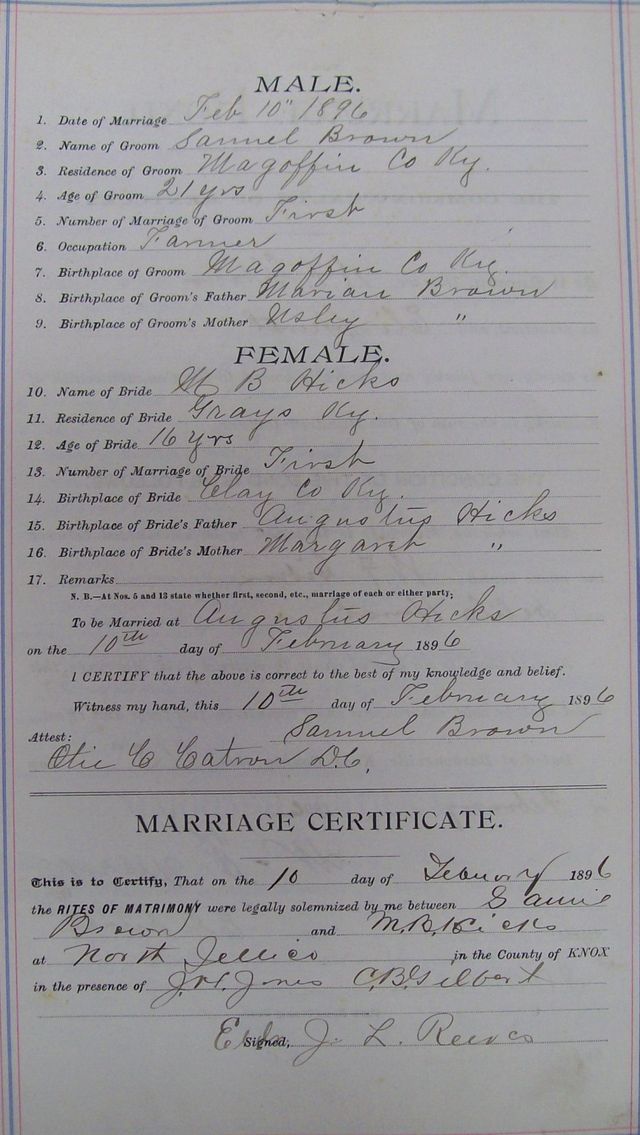 MALE.
1. Date of Marriage Feb 10" 1896
2. Name of Groom Samuel Brown
3. Residence of Groom Magoffin Co Ky.
4. Age of Groom 21 yrs
5. Number of Marriage of Groom First
6. Occupation Farmer
7. Birthplace of Groom Magoffin Co Ky.
8. Birthplace of Groom's Father Marian Brown
9. Birthplace of Groom's Mother Usley "
FEMALE.
10. Name of Bride M B Hicks
11. Residence of Bride Grays Ky.
12. Age of Bride 16 yrs
13. Number of Marriage of Bride First
14. Birthplace of Bride Clay Co Ky.
15. Birthplace of Bride's Father Augustus Hicks
16. Birthplace of Bride's Mother Margaret "
17. Remarks
N. B.—At Nos. 5 and 13 state whether first, second, etc., marriage of each or either party;
To be Married at Augustus Hicks
on the 10th day of February 1896
I CERTIFY that the above is correct to the best of my knowledge and belief.
Witness my hand, this 10th day of February 1896
Samuel Brown
Attest:
Otie C Catron D.C.
MARRIAGE CERTIFICATE.
This is to Certify, That on the 10 day of February 1896
the RITES OF MATRIMONY were legally solemnized by me between Samie
Brown and M.B. Hicks
at North Jellico in the County of KNOX
in the presence of J.H. Jones C.B. Gilbert
Signed, J. L. Reeves